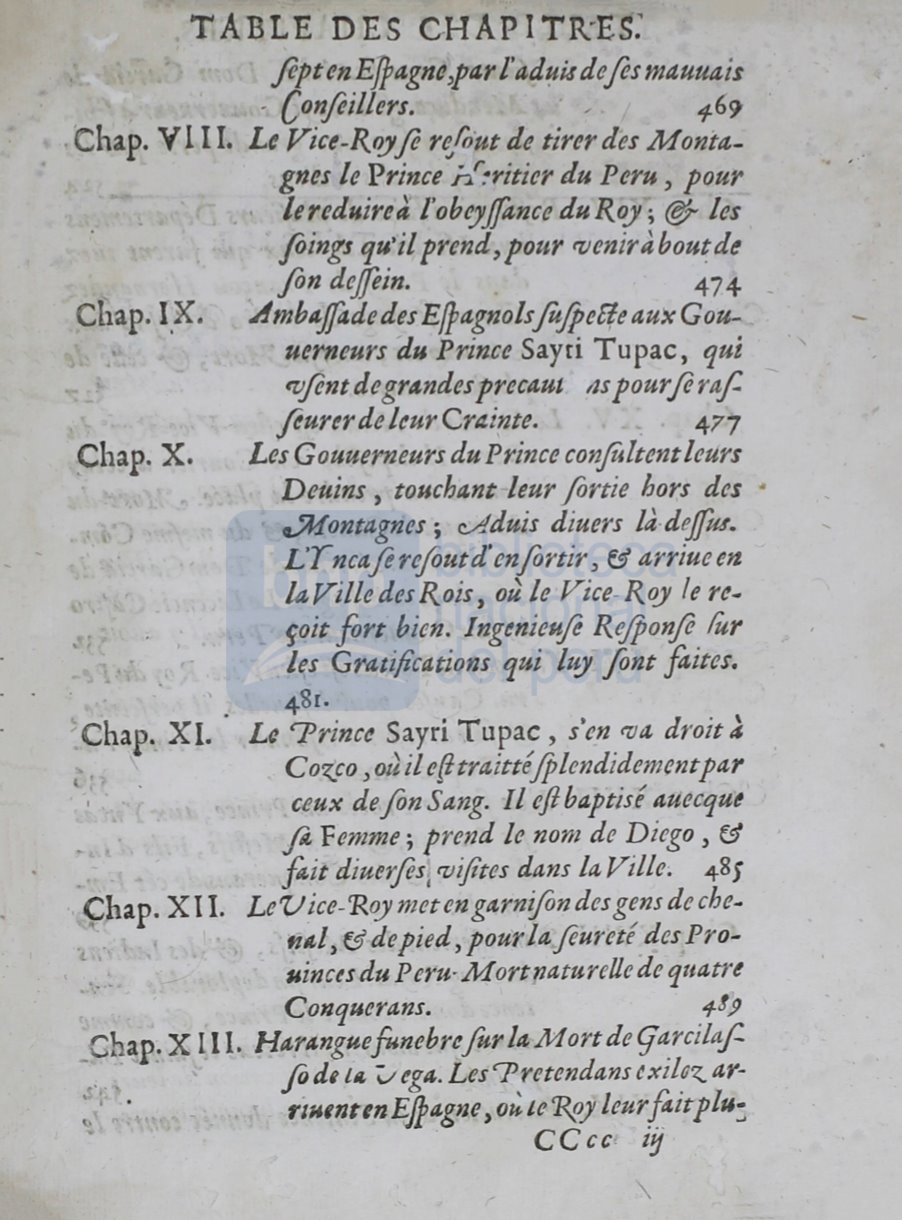 TABLE DES CHAPITRES.
ſept en Eſpagne, par l'aduis de ſes mauuais
Conſeillers. 469
Chap. VIII. Le Vice-Roy ſe reſout de tirer des Monta-
gnes le Prince du Peru, pour
le reduire à l'obeyſſance du Roy; & les
ſoings qu'il prend, pour venir à bout de
ſon deſſein. 474
Chap. IX. Ambaſſade des Eſpagnols ſuſpecte aux Gou-
uerneurs du Prince Sayri Tupac, qui
vſent de grandes pour ſe raſ-
ſeurer de leur Crainte. 477
Chap. X. Les Gouuerneurs du Prince conſultent leurs
Deuins, touchant leur ſortie hors des
Montagnes; Aduis diuers là deſſus.
L'Ynca ſe reſout d'en ſortir, & arriue en
la Ville des Rois, où le Vice-Roy le re-
çoit fort bien. Ingenieuſe Reſponſe ſur
les Gratifications qui luy ſont faites.
481.
Chap. XI. Le Prince Sayri Tupac, s'en va droit à
Cozco, où il eſt traitté ſplendidement par
ceux de ſon Sang. Il eſt baptisé auecque
ſa Femme; prend le nom de Diego, &
fait diuerſes viſites dans la Ville. 485
Chap. XII. Le Vice-Roy met en garniſon des gens de che-
ual, & de pied, pour la ſeureté des Pro-
uinces du Peru. Mort naturelle de quatre
Conquerans. 489
Chap. XIII. Harangue funebre ſur la Mort de Garcilaſ-
ſo de la Vega. Les Pretendans exilez ar-
riuent en Eſpagne, où le Roy leur fait plu-
CCcc iij
biblioteca
nacional
del perú